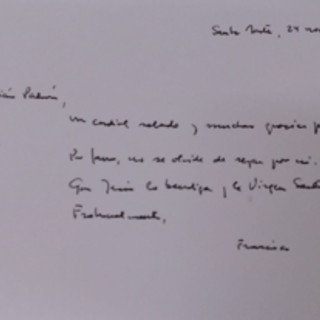 Santa Marta, 24
Padrón,
un cordial saludo y muchas gracias p
Por favor, no se olvide de rezar por mí.
Que Jesús lo bendiga y la Virgen Santa
Fraternalmente,
Francisco